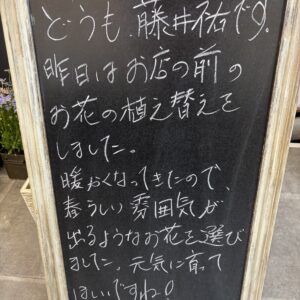 どうも、藤井祐です。
昨日はお店の前の
お花の植え替えを
しました。
暖かくなってきたので、
春らしい雰囲気が
出るようなお花を選び
ました。元気に育って
ほしいですね!